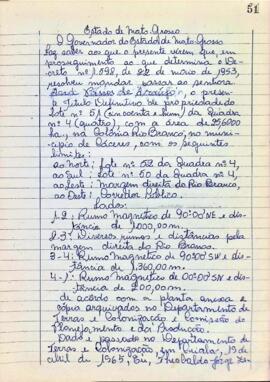 51
Estado de Mato Grosso
O Governador do Estado de Mato Grosso
Faz saber aos que o presente virem que, em
prosseguimento ao que determina o De-
creto nº 1.598, de 22 de maio de 1953,
resolveu mandar passar ao senhora
de Araújo, o presen-
te Título Definitivo de propriedade do
lote nº 51 (cincoenta e hum) da Quadra
nº 4 (quatro), com a área de 256000
ha, na Colônia Rio Branco, no muni-
cípio de Cáceres, com os seguintes
limites:
ao Norte; lote nº 52 da Quadra nº 4,
ao Sul; lote nº 50 da Quadra nº 4,
ao Leste; margem direita do Rio Branco,
ao Oeste; Corredor Público.
Dados:
1-2: Rumo magnético de 90:00'SW e dis-
tância de 1.000,00m.
2-3: Diversos rumos e distâncias pela
margem direita do Rio Branco.
3-4: Rumo magnético de 90:00'SW e dis-
tância de 1.360,00m.
4-1: Rumo magnético de 00:00'SW e dis-
tância de 200,00m.
de acordo com a planta anexa e
cópia arquivados no Departamento de
Terras e Colonização e Comissão do
Planejamento e da Produção.
Dado e passado no Departamento de
Terras e Colonização, em Cuiabá, 19 de
abril de 1965, Eu, Theobaldo Jorge